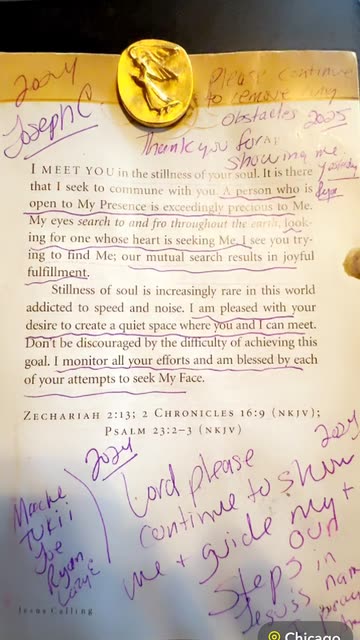 2024
Joseph C.
Please continue
to remove my
obstacles 2025
Thank you for
showing me
yesterday
I MEET YOU in the stillness of your soul. It is there
that I seek to commune with you. A person who is
open to My Presence is exceedingly precious to Me.
My eyes search to and fro throughout the earth, look-
ing for one whose heart is seeking Me. I see you try-
ing to find Me; our mutual search results in joyful
fulfillment.
Stillness of soul is increasingly rare in this world
addicted to speed and noise. I am pleased with your
desire to create a quiet space where you and I can meet.
Don't be discouraged by the difficulty of achieving this
goal. I monitor all your efforts and am blessed by each
of your attempts to seek My Face.
ZECHARIAH 2:13; 2 CHRONICLES 16:9 (NKJV);
PSALM 23:2–3 (NKJV)
2024
2024
Lord please
continue to show
me + guide my +
our
steps in
Jesus's name
Joe
Ryan
Jesus Calling
Chicago